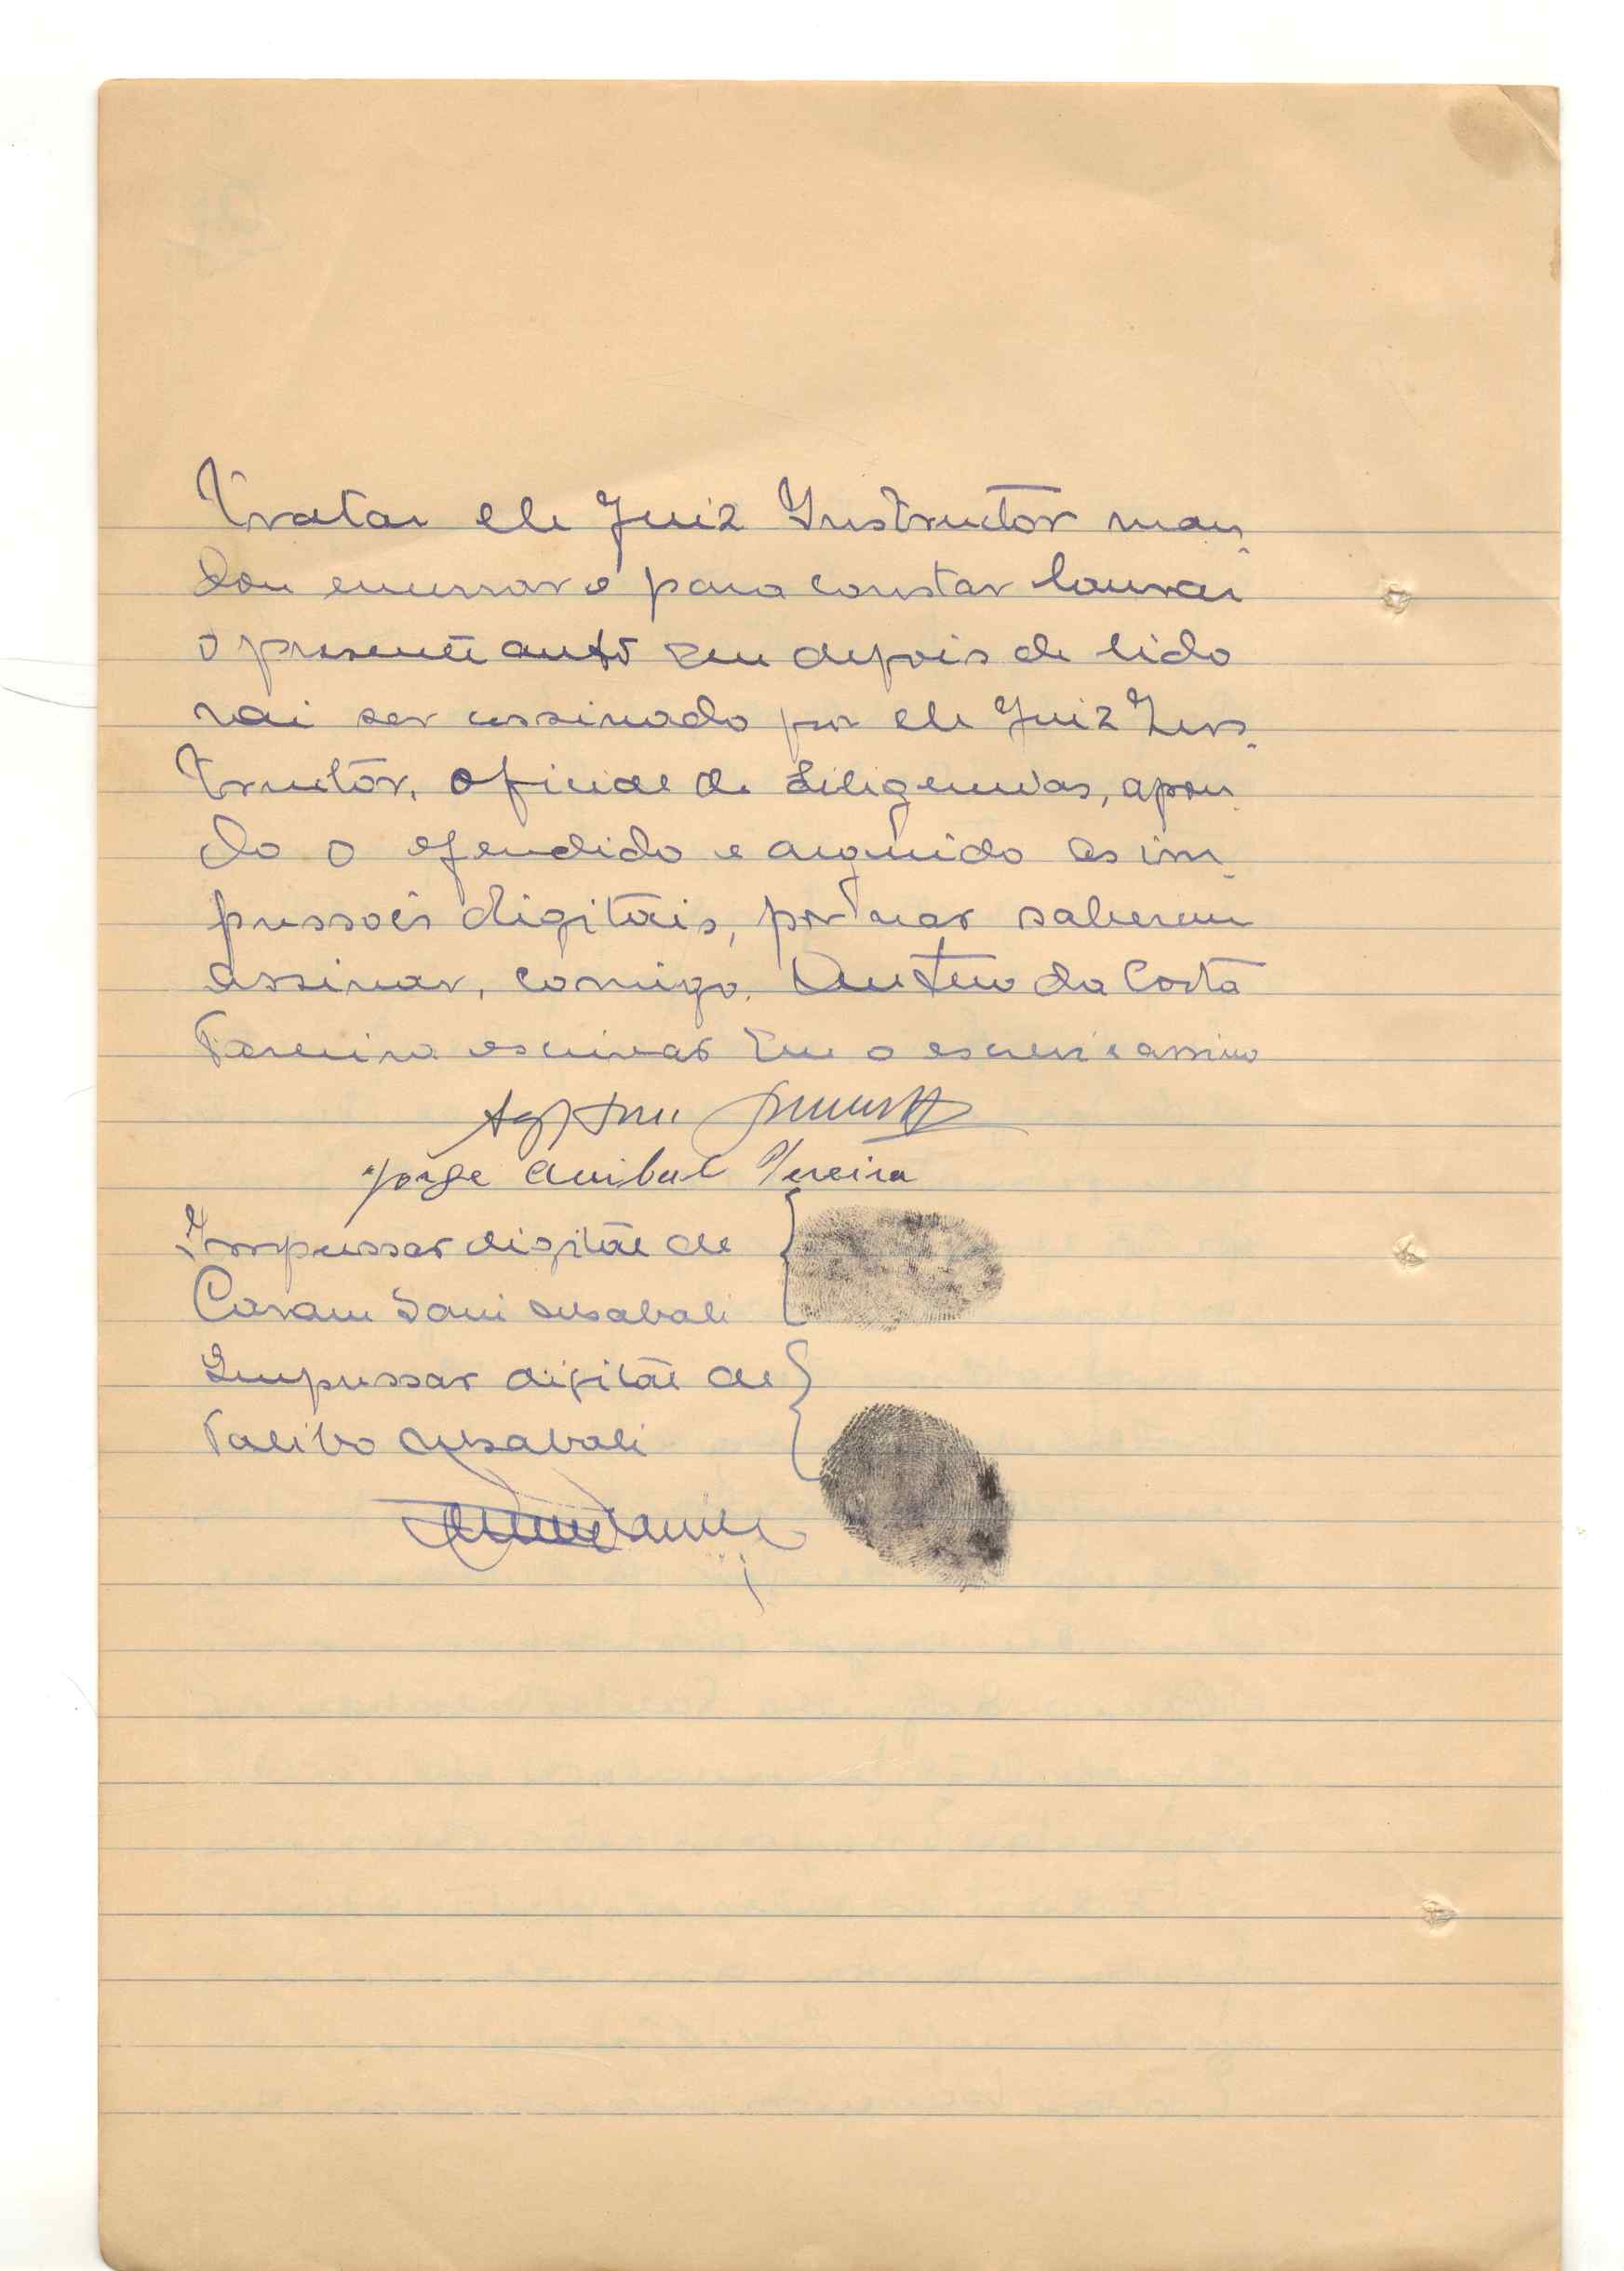 tratar ele Juiz Instructor man-
dou encerrar e para constar lavrar
o presente auto que depois de lido
vai ser assinado por ele Juiz Ins-
trutôr, oficial de diligencias, apon-
do o ofendido e arguido as im-
pressoês digitais, por nao saberem
assinar, comigo. Antero da Costa
escrivao que o escrevi e assino
Jorge Anibal Pereira
Impressao digital de
Caram Sani Cassabali
Impressao digital de
Talibo Cassabali